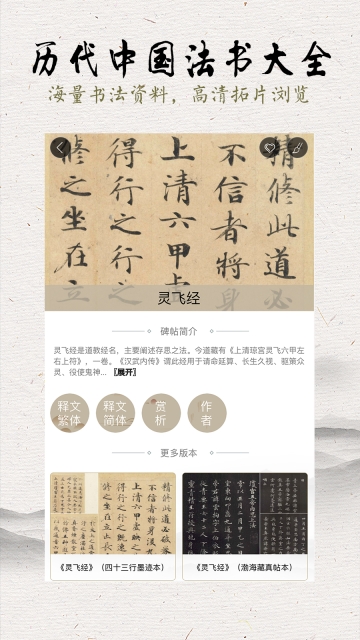 历代中国法书大全
海量书法资料，高清拓片浏览
精修此道必
不信者将身
上清六甲上
得行之行之
修之坐在立
灵飞经
碑帖简介
灵飞经是道教经名，主要阐述存思之法。今道藏有《上清琼宫灵飞六甲左
右上符》，一卷。《汉武内传》谓此经用于请命延算、长生久视、驱策众
灵、役使鬼神... 【展开】
释文
繁体
释文
简体
赏
析
作
者
更多版本
《灵飞经》（四十三行墨迹本）
《灵飞经》（渤海藏真帖本）